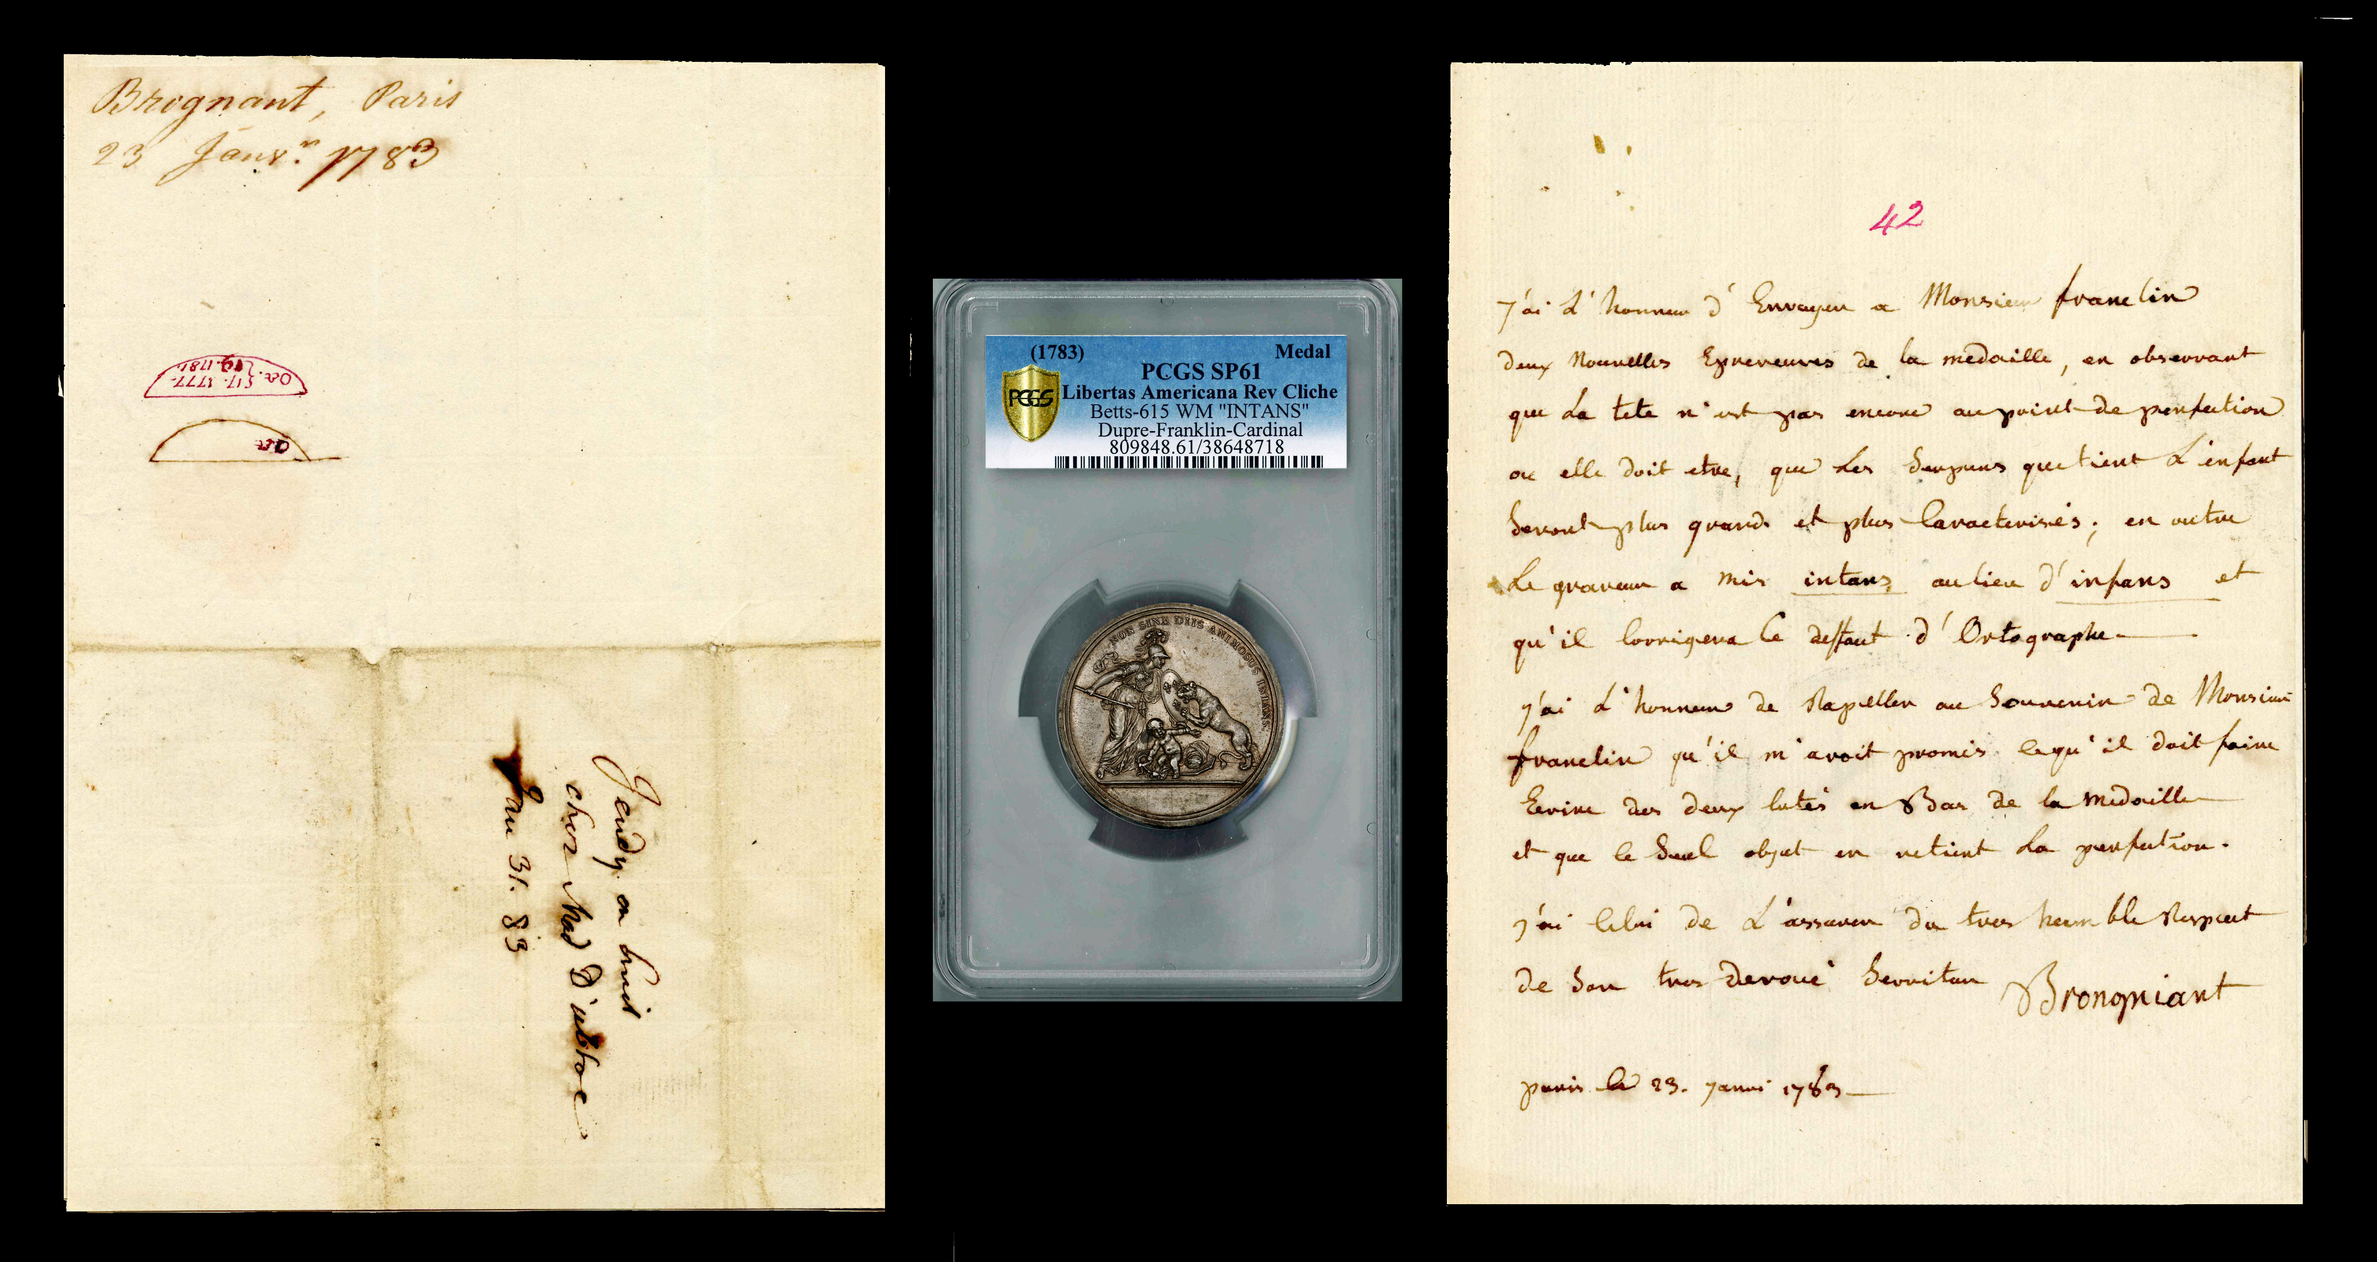 Brognant, Paris
23 Janvr. 1783
Oct. 17. 1777.
Oct. 19. 1781.
Oct
Jeudy en huit
chez Mad D'
Jan 31. 83
(1783) Medal
PCGS SP61
PCGS
Libertas Americana Rev Cliche
Betts-615 WM "INTANS"
Dupre-Franklin-Cardinal
809848.61/38648718
NON SINE DIIS ANIMOSUS INTANS
42
j'ai L'honneur d'Envoyer a Monsieur franclin
deux Nouvelles Epreveuves de la medaille, en observant
que La tete n'est pas encore au point de perfection
ou elle doit etre, que Les Serpens que tient L'enfant
Seront plus grands et plus Caracterisés; en outre
Le graveur a mis intans au lieu d'infans et
qu'il Corrigera Ce deffaut d'Ortographe
j'ai L'honneur de Rapeller au Souvenir de Monsieur
franclin qu'il m'avoit promis ce qu'il doit faire
Ecrire des deux Cotés en Bas de la medaille
et que ce Seul objet en retient La perfection.
j'ai Celui de L'assurer du tres humble Respect
de Son tres devoué Serviteur Brongniart
paris le 23. janvi 1783